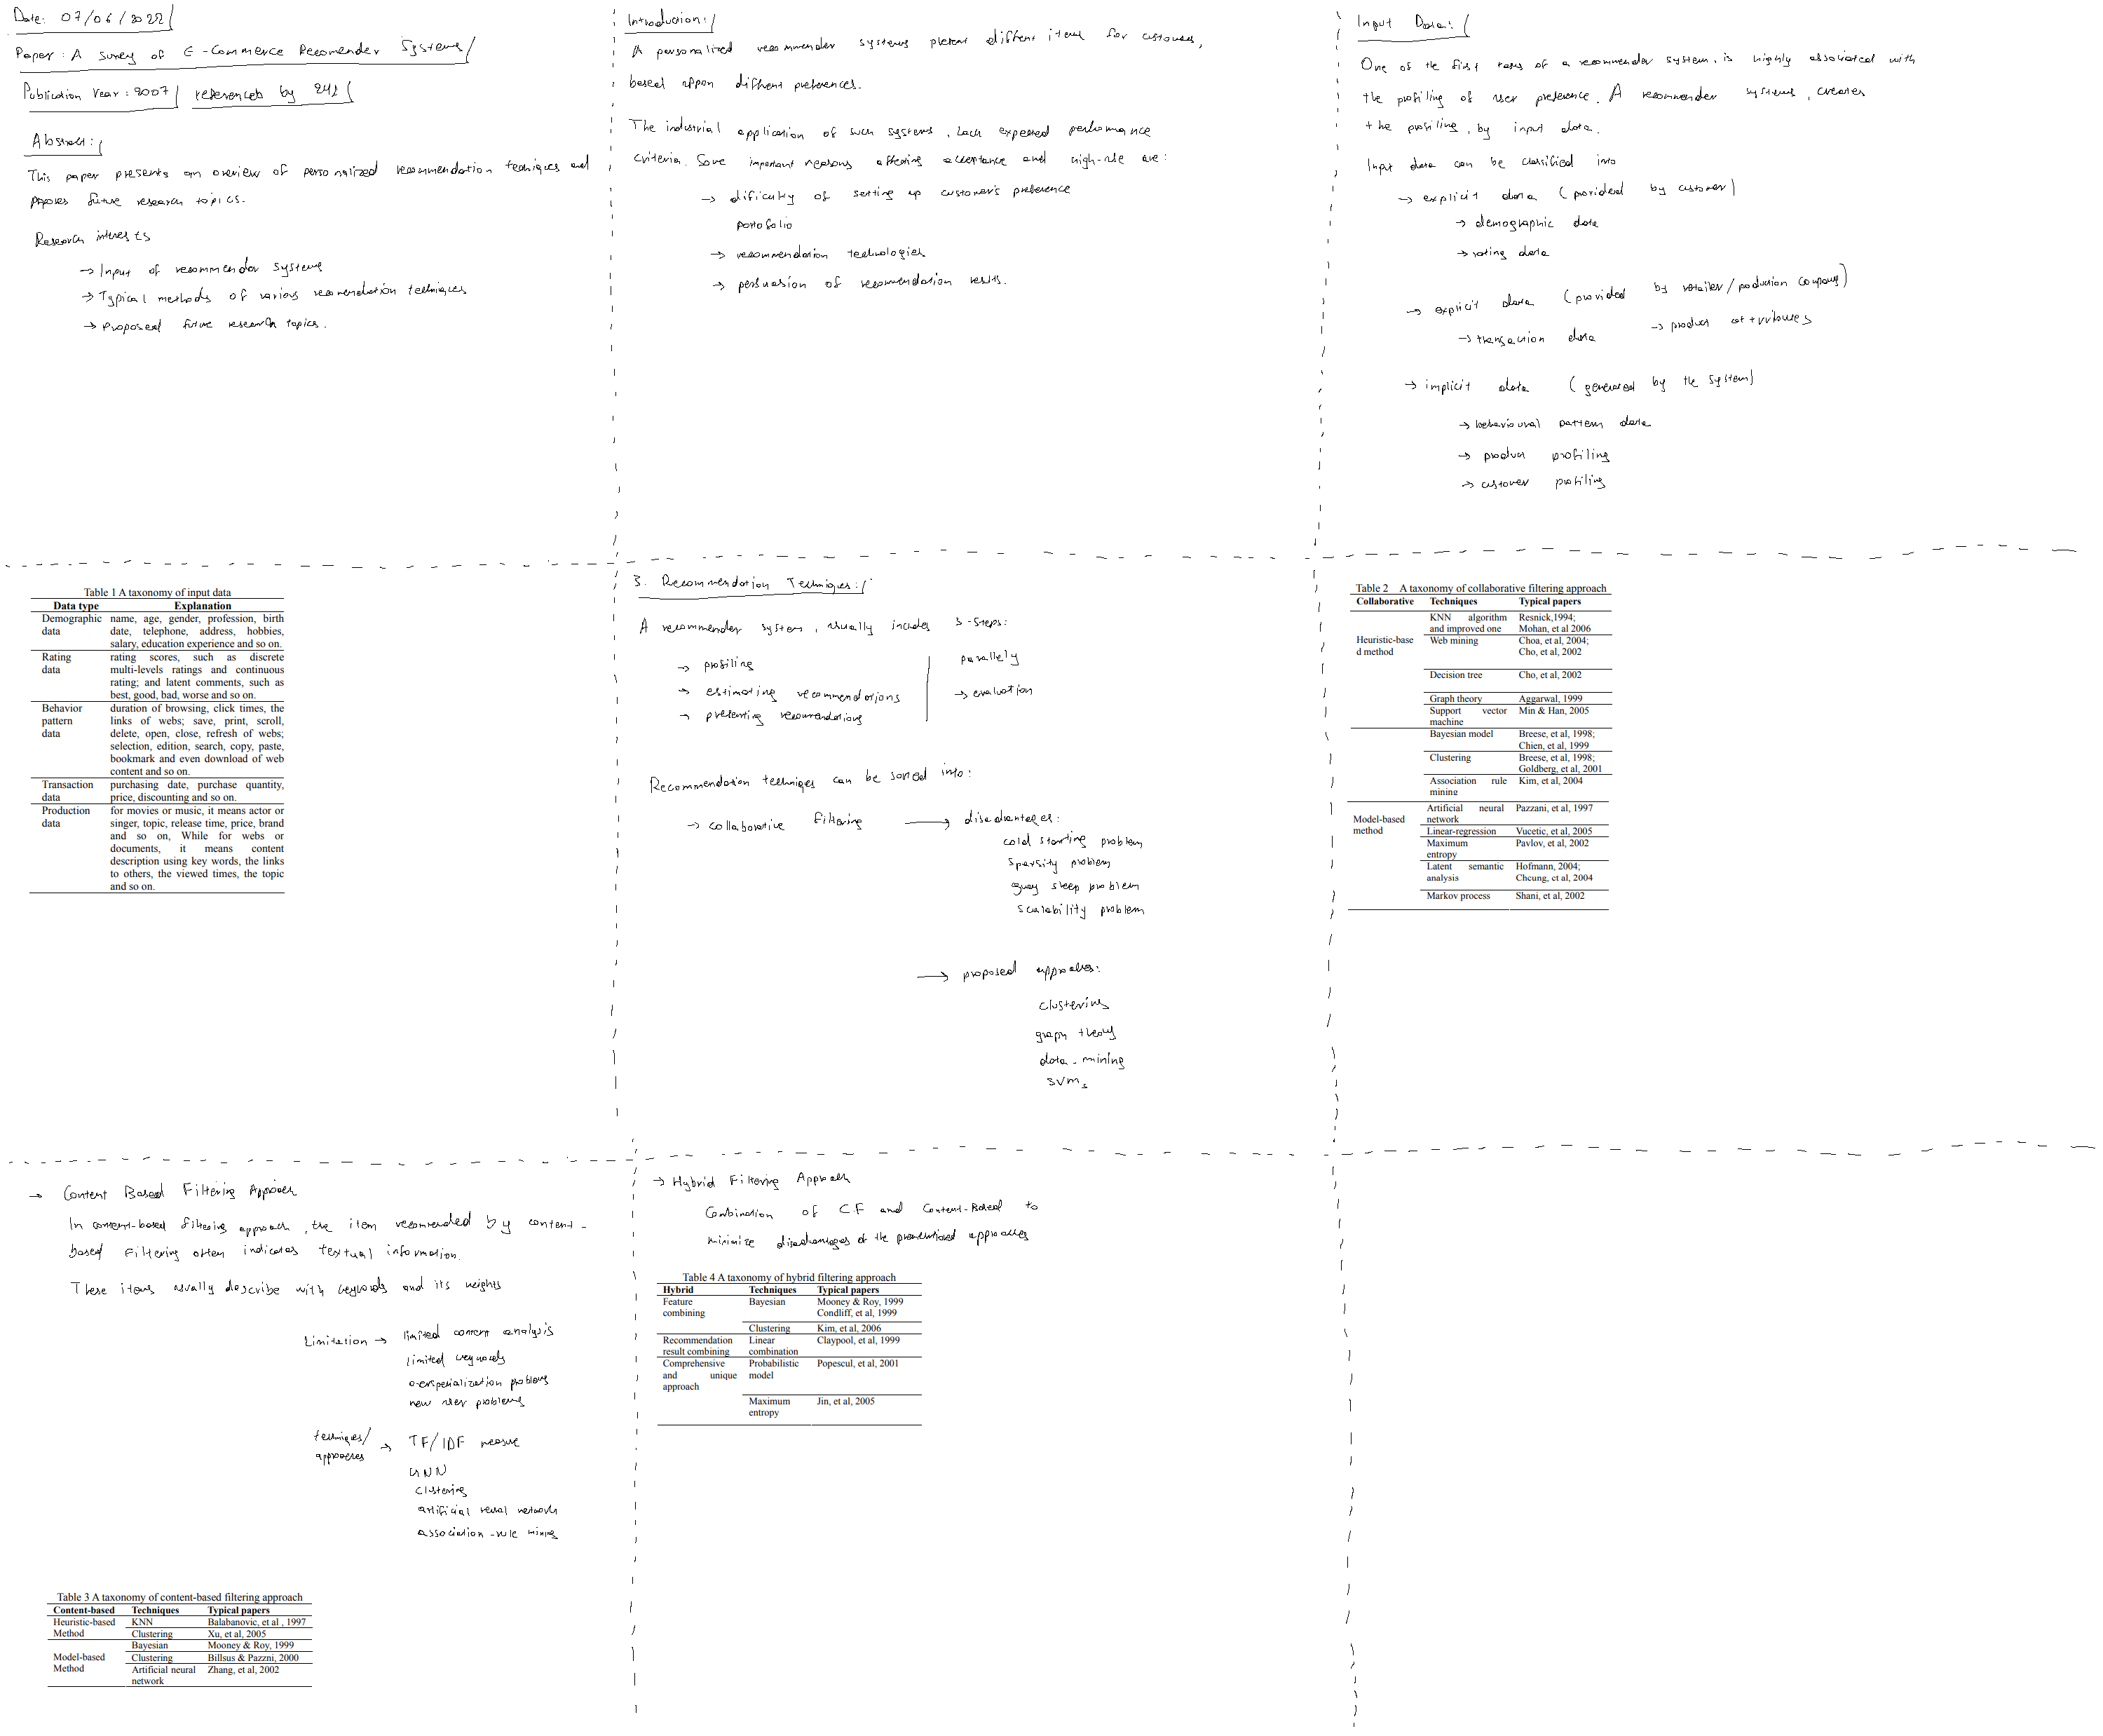 Date: 07/06/2022
Paper: A survey of E-Commerce Recomender Systems
Publication Year: 2007 referenced by 241
Abstract:
This paper presents an overview of personalized recommendation techniques and
proposes future research topics.
Research interests
→ Input of recommender systems
→ Typical methods of various recomendation techniques
→ Proposed future research topics.
Introduction:
A personalized recommender systems present different items for customers,
based uppon different preferences.
The industrial application of such systems, lack expected performance
criteria. Some important reasons affecting acceptance and high-use are:
→ dificulty of setting up customer's preference
portofolio
→ recommendation technologies
→ persuasion of recomendation results.
Input Data:
One of the first tasks of a recommender system, is highly associated with
the profiling of user preference. A recommender systems, creates
the profiling, by input data.
Input data can be classified into
→ explicit data (provided by customer)
→ demographic data
→ rating data
→ explicit data (provided by retailer/production company)
→ transaction data → product attributes
→ implicit data (generated by the system)
→ behavioural pattern data
→ product profiling
→ customer profiling
Table 1 A taxonomy of input data
Data type Explanation
Demographic data name, age, gender, profession, birth
date, telephone, address, hobbies,
salary, education experience and so on.
Rating data rating scores, such as discrete
multi-levels ratings and continuous
rating; and latent comments, such as
best, good, bad, worse and so on.
Behavior pattern data duration of browsing, click times, the
links of webs; save, print, scroll,
delete, open, close, refresh of webs;
selection, edition, search, copy, paste,
bookmark and even download of web
content and so on.
Transaction data purchasing date, purchase quantity,
price, discounting and so on.
Production data for movies or music, it means actor or
singer, topic, release time, price, brand
and so on, While for webs or
documents, it means content
description using key words, the links
to others, the viewed times, the topic
and so on.
3. Recommendation Techniques:
A recommender system, usually includes 3-steps:
→ profiling
→ estimating recommendations
→ presenting recomendations
parallely
→ evaluation
Recommendation techniques can be sorted into:
→ collaborative filtering → disadvantages:
cold starting problem
sparsity problem
gray sleep problem
scalability problem
→ proposed approaches:
clustering
graph theory
data-mining
SVMs
Table 2 A taxonomy of collaborative filtering approach
Collaborative Techniques Typical papers
Heuristic-based method
KNN algorithm and improved one Resnick,1994; Mohan, et al 2006
Web mining Choa, et al, 2004; Cho, et al, 2002
Decision tree Cho, et al, 2002
Graph theory Aggarwal, 1999
Support vector machine Min & Han, 2005
Bayesian model Breese, et al, 1998; Chien, et al, 1999
Clustering Breese, et al, 1998; Goldberg, et al, 2001
Association rule mining Kim, et al, 2004
Model-based method
Artificial neural network Pazzani, et al, 1997
Linear-regression Vucetic, et al, 2005
Maximum entropy Pavlov, et al, 2002
Latent semantic analysis Hofmann, 2004; Cheung, et al, 2004
Markov process Shani, et al, 2002
→ Content Based Filtering Approach
In content-based filtering approach, the item recommended by content-
based filtering often indicates textual information.
These items usually describe with keywords and its weights
Limitation → limited content analysis
limited keywords
overspecialization problems
new user problems
techniques/
approaches → TF/IDF measure
KNN
clustering
artificial neural network
association-rule mining
Table 3 A taxonomy of content-based filtering approach
Content-based Techniques Typical papers
Heuristic-based Method
KNN Balabanovic, et al , 1997
Clustering Xu, et al, 2005
Model-based Method
Bayesian Mooney & Roy, 1999
Clustering Billsus & Pazzni, 2000
Artificial neural network Zhang, et al, 2002
→ Hybrid Filtering Approach
Combination of CF and Content-Based to
minimize disadvantages of the approaches
Table 4 A taxonomy of hybrid filtering approach
Hybrid Techniques Typical papers
Feature combining
Bayesian Mooney & Roy, 1999 Condliff, et al, 1999
Clustering Kim, et al, 2006
Recommendation result combining Linear combination Claypool, et al, 1999
Comprehensive and unique approach
Probabilistic model Popescul, et al, 2001
Maximum entropy Jin, et al, 2005